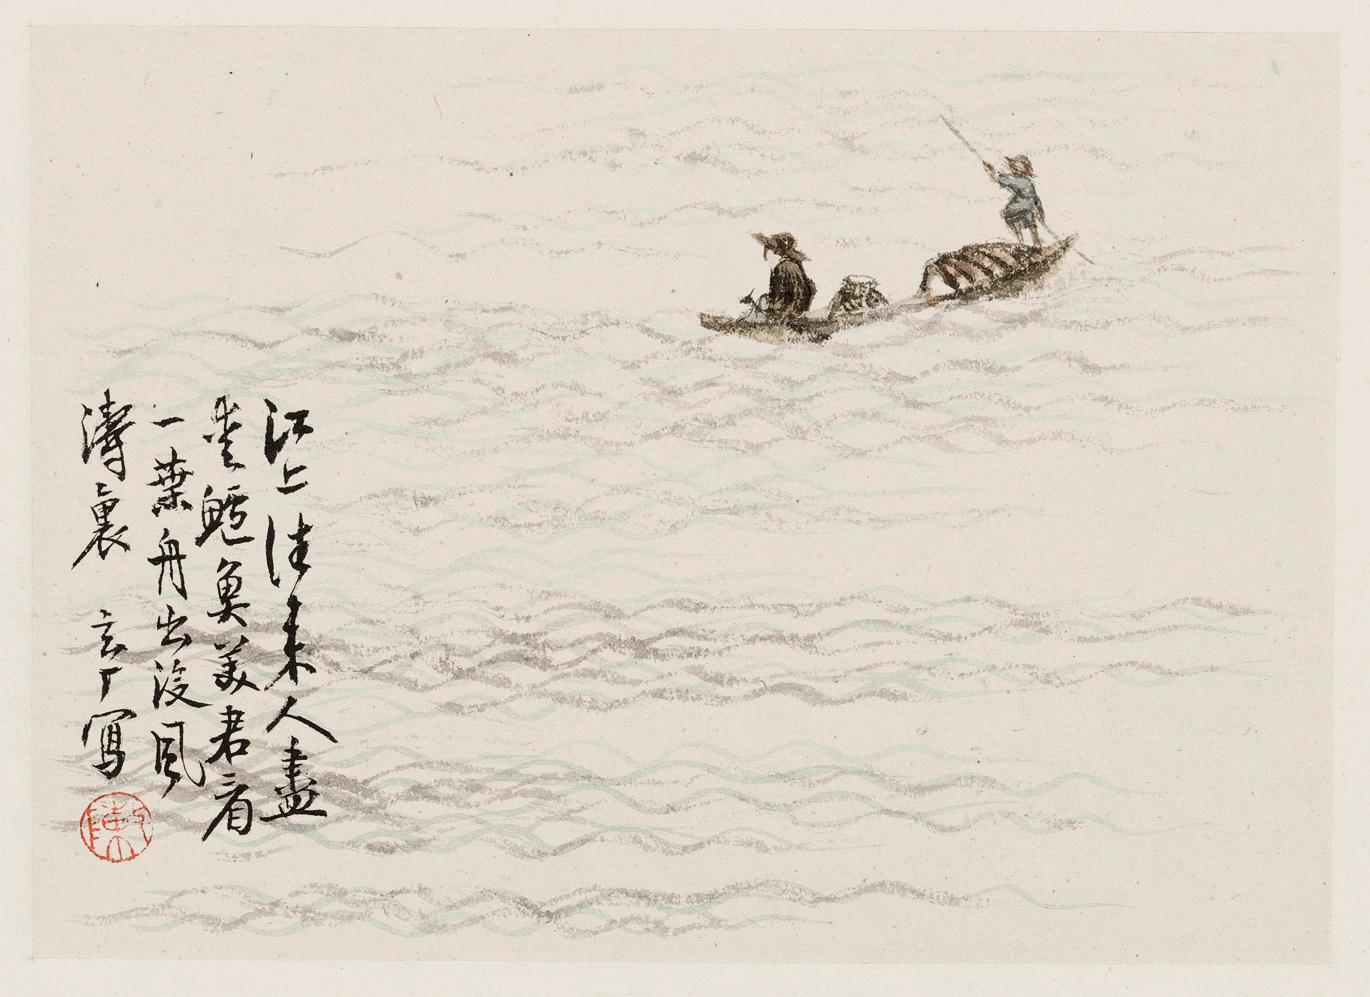 江上往来人盡
愛鱸魚美君看
一葉舟出没風
濤裏 玄厂寫